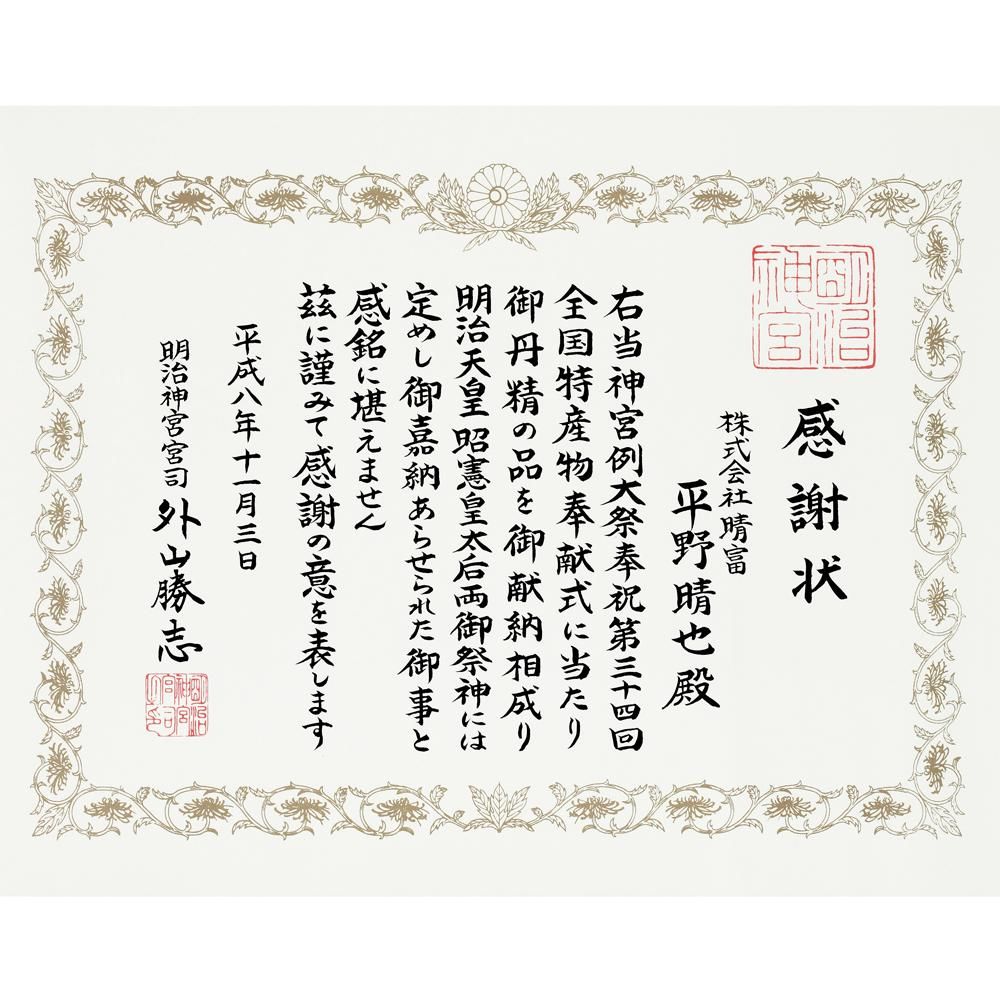 明治神宮
感謝状
株式会社晴富
平野晴也殿
右当神宮例大祭奉祝第三十四回
全国特産物奉献式に当たり
御丹精の品を御献納相成り
明治天皇昭憲皇太后両御祭神には
定めし御嘉納あらせられた御事と
感銘に堪えません
茲に謹みて感謝の意を表します
平成八年十一月三日
明治神宮宮司外山勝志
明治神宮宮司之印